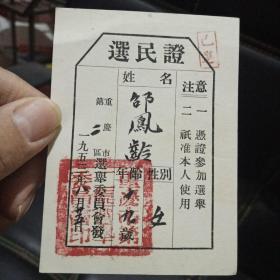 選民證
已選
注意
一 憑證參加選舉
二 祇准本人使用
姓名
邵鳳齡
性別
女
年齡
十九歲
重慶市
第二區選舉委員會發
一九五三年八月 日